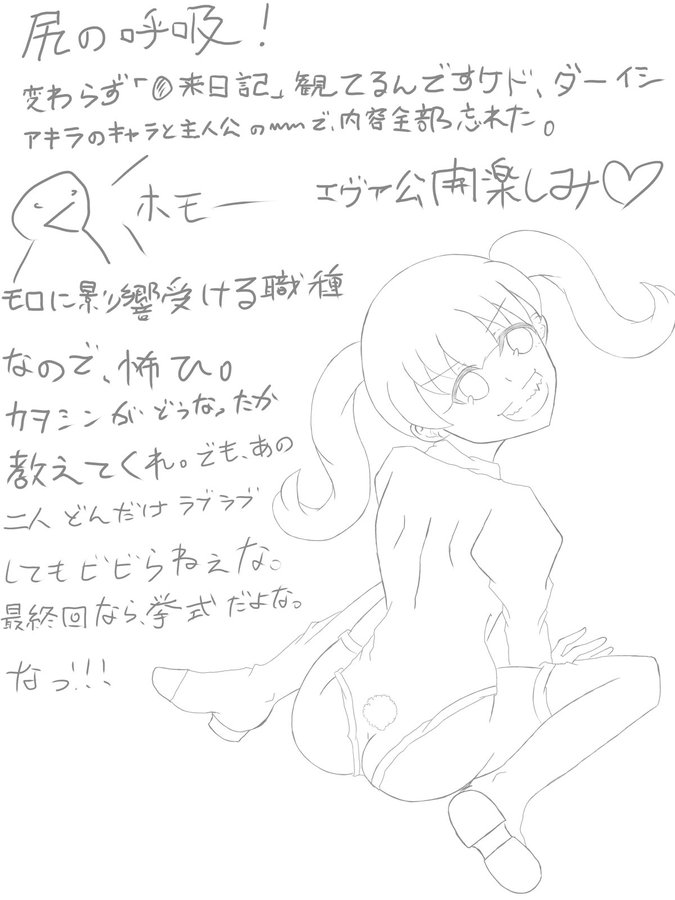 尻の呼吸！
変わらず「〇来日記」観てるんですケド、ダーイシ
アキラのキャラと主人公のmmで、内容全部忘れた。
ホモー
エヴァ公開楽しみ♡
モロに影響受ける職種
なので、怖ひ。
カヲシンがどうなったか
教えてくれ。でも、あの
二人どんだけラブラブ
してもビビらねぇな。
最終回なら、挙式だよな。
なっ!!!